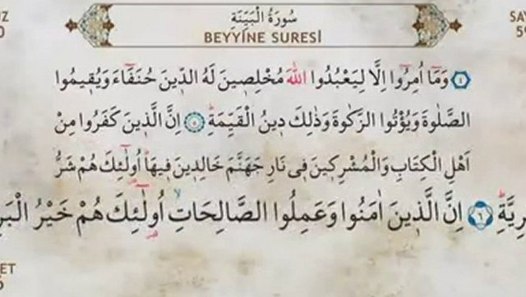 سُورَةُ الْبَيِّنَةِ
BEYYİNE SURESİ
٤ وَمَٓا اُمِرُٓوا اِلَّا لِيَعْبُدُوا اللّٰهَ مُخْلِصٖينَ لَهُ الدّٖينَ حُنَفَٓاءَ وَيُقٖيمُوا
الصَّلٰوةَ وَيُؤْتُوا الزَّكٰوةَ وَذٰلِكَ دٖينُ الْقَيِّمَةِ ٥ اِنَّ الَّذٖينَ كَفَرُوا مِنْ
اَهْلِ الْكِتَابِ وَالْمُشْرِكٖينَ فٖي نَارِ جَهَنَّمَ خَالِدٖينَ فٖيهَا اُو۬لٰٓئِكَ هُمْ شَرُّ
رِيَّةِ ٦ اِنَّ الَّذٖينَ اٰمَنُوا وَعَمِلُوا الصَّالِحَاتِ اُو۬لٰٓئِكَ هُمْ خَيْرُ الْبَر